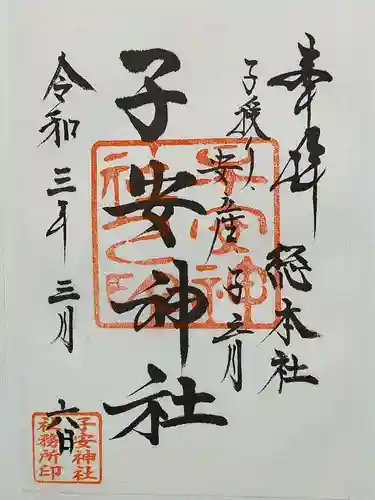 奉拝
総本社
子授り、
安産 子育
子安神社
令和三年三月
六日
子安神社
社務所印